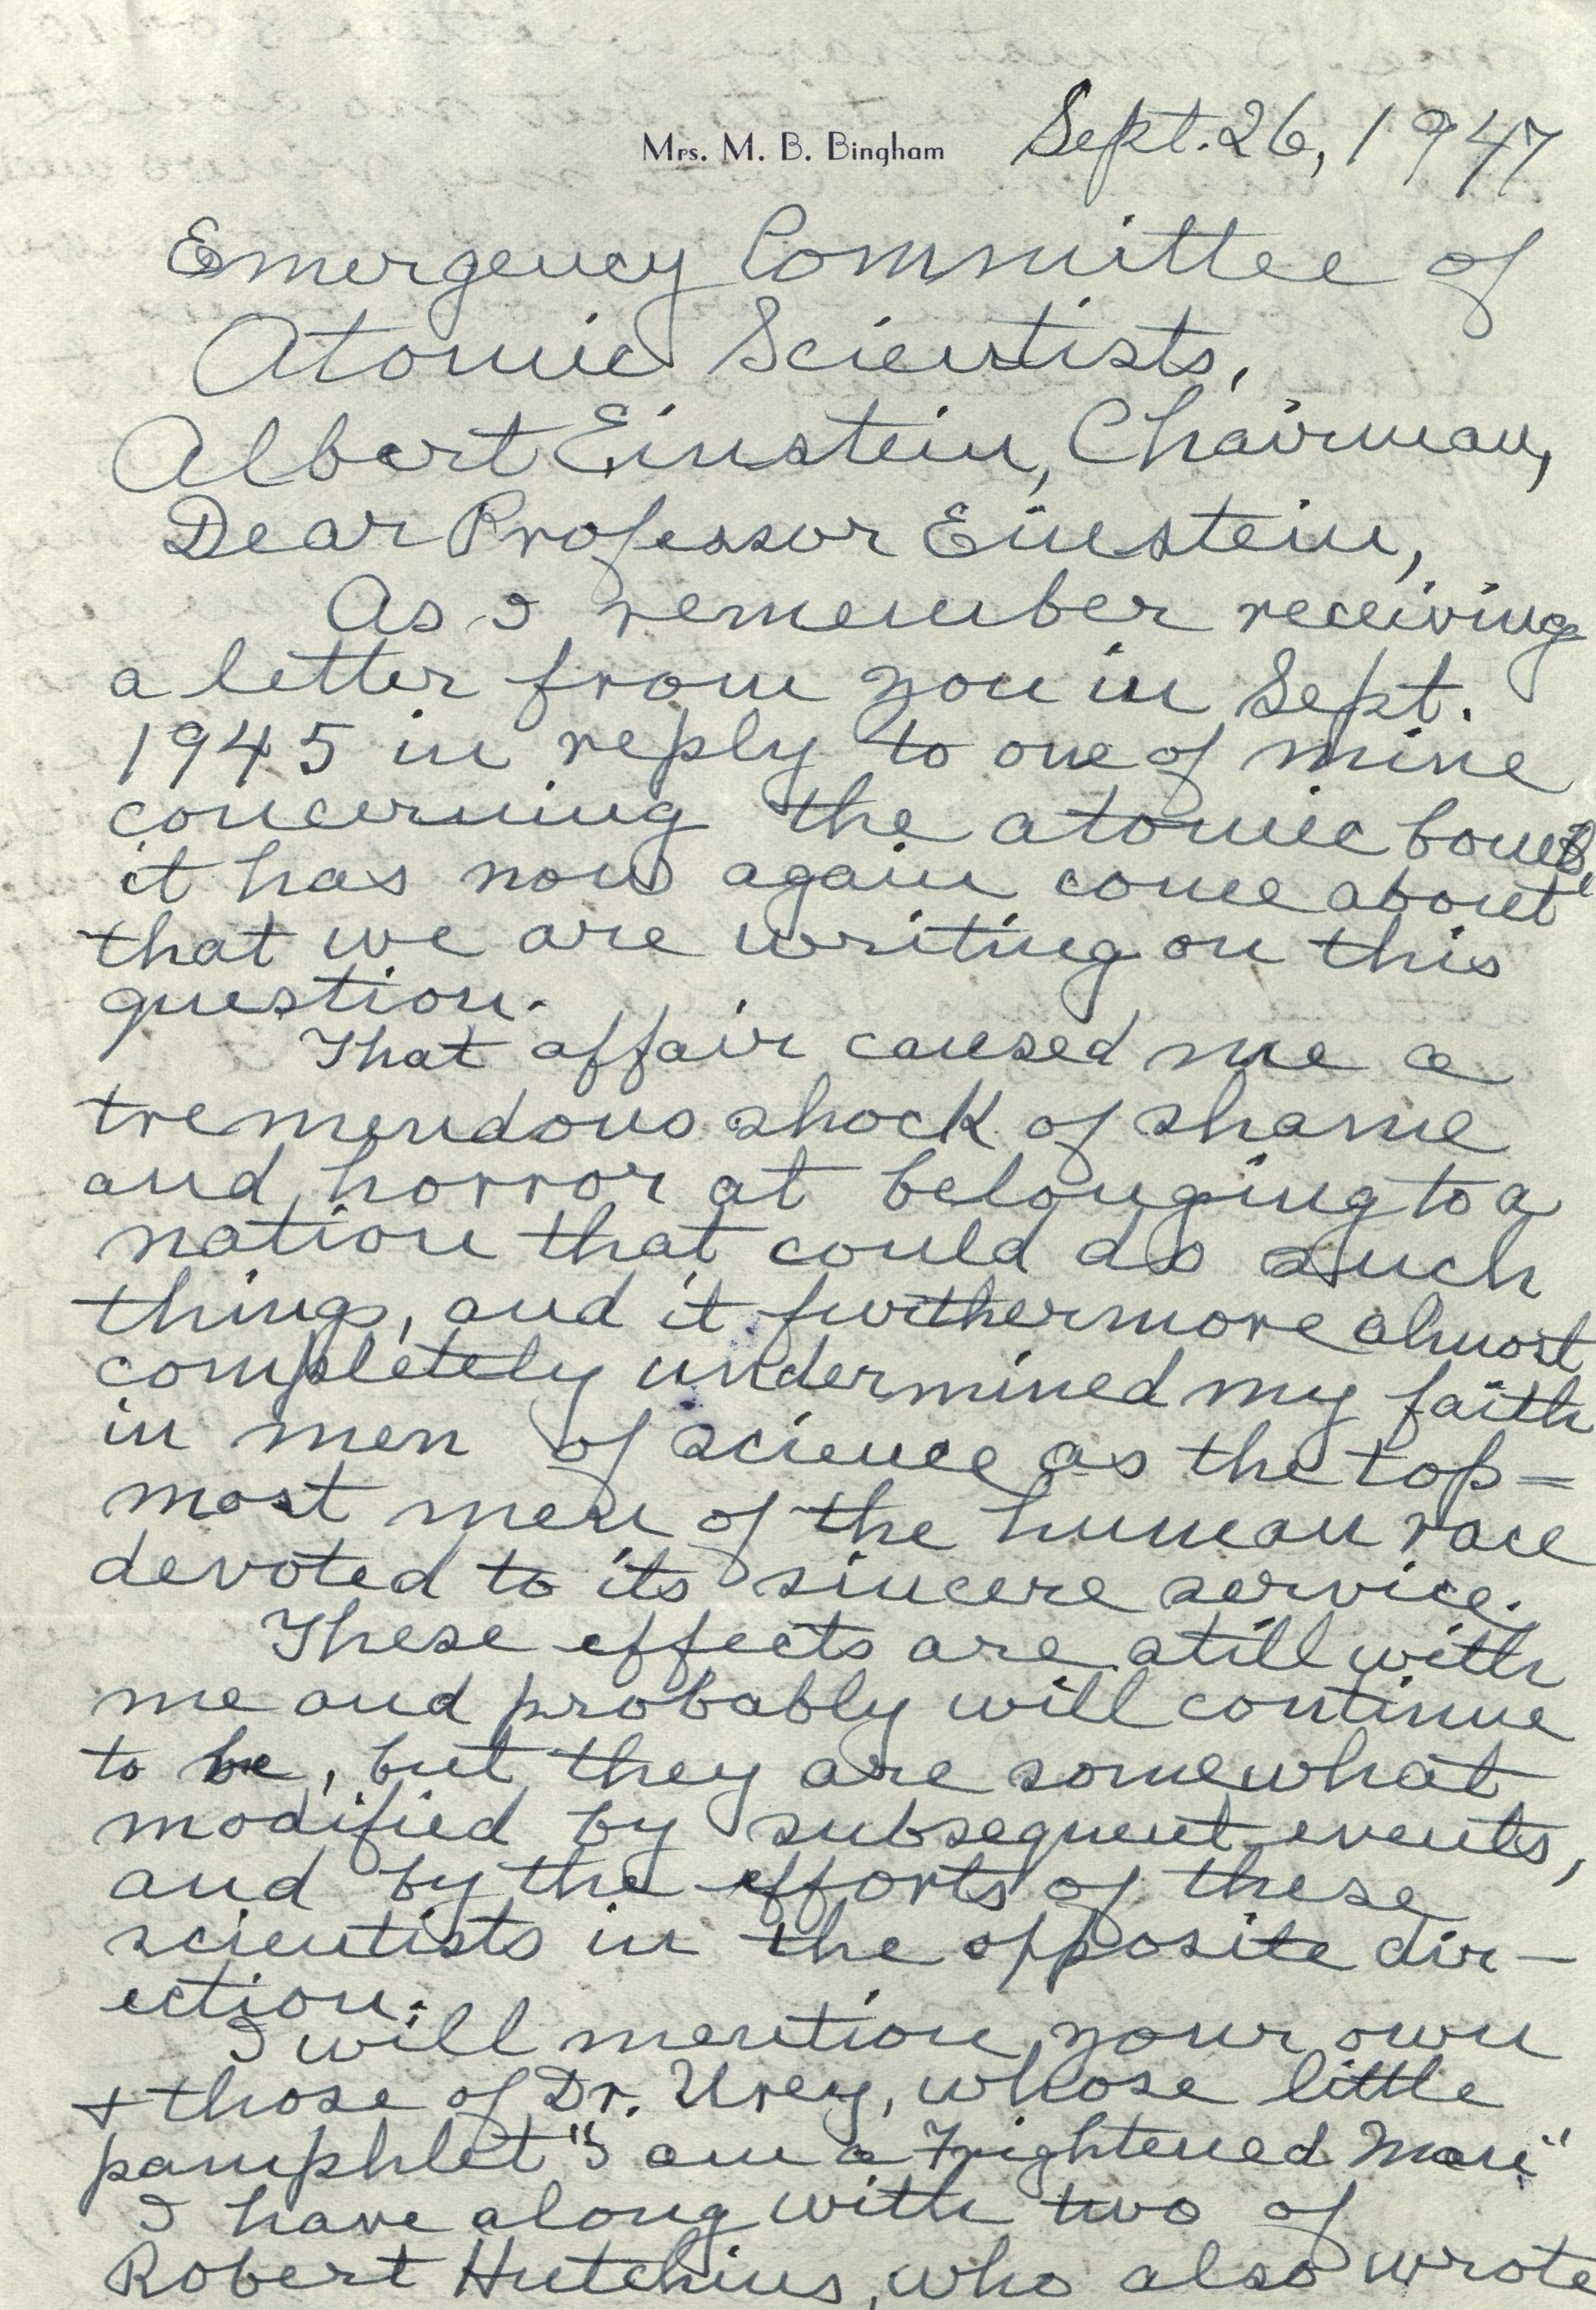 Mrs. M. B. Bingham Sept. 26, 1947
Emergency Committee of
Atomic Scientists,
Albert Einstein, Chairman,
Dear Professor Einstein,
As I remember receiving
a letter from you in Sept.
1945 in reply to one of mine
concerning the atomic bomb,
it has now again come about
that we are writing on this
question.
That affair caused me a
tremendous shock of shame
and horror at belonging to a
nation that could do such
things, and it furthermore almost
completely undermined my faith
in men of science as the top=
most men of the human race
devoted to its sincere service.
These effects are still with
me and probably will continue
to be, but they are somewhat
modified by subsequent events,
and by the efforts of these
scientists in the opposite dir-
ection.
I will mention your own
+ those of Dr. Urey, whose little
pamphlet "I am a Frightened Man"
I have along with two of
Robert Hutchins, who also wrote